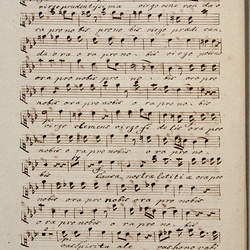 virgo prudentissima virgo vene ran da o
ra pro nobis pro no bis virgo predi can
da o ra o ra pro no bis virgo potens
ora pro nobis pro no bis ora pro
nobis ora pro nobis o ra pro no bis
virgo clemens virgo fi de lis ora pro
nobis o ra pro nobis o ra pro no
bis Causa nostræ letitiæ ora pro
nobis ora pro nobis ora pro nobis
ora pro nobis o ra pro no bis
vas spiritu ale ora pro nobis